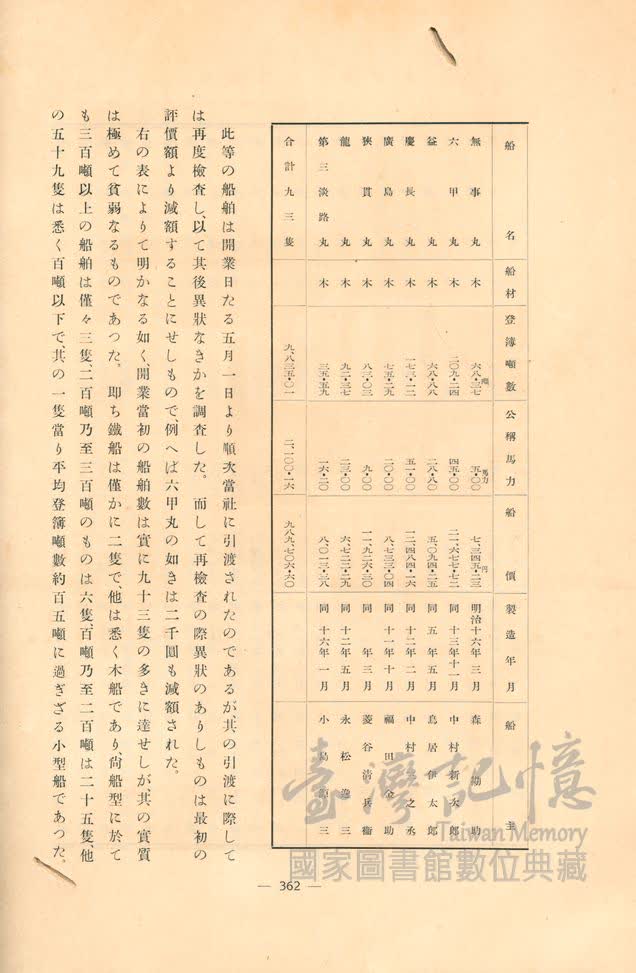 船名 船材 登簿噸數 公稱馬力 船價 製造年月 船主
無事丸 木 六八・三七噸 五・〇〇馬力 七、三四五・二三円 明治十六年三月 森勘助
六甲丸 木 二〇九・二四 四五・〇〇 二二、六七七・七二 同十三年十一月 中村新次郎
益丸 木 六八・八八 二八・八〇 五、〇九四・二五 同五年五月 鳥居伊太郎
慶長丸 木 一七三・一二 五一・〇〇 一二、四八四・一六 同十二年二月 中村三之丞
廣島丸 木 七五・二九 二〇・〇〇 八、七三三・〇四 同十一年十月 福田金助
狹貫丸 木 八三・〇三 九・〇〇 一一、九二六・三〇 同年三月 菱谷清兵衞
龍丸 木 九二・三七 二三・〇〇 六、六七二・二九 同十二年五月 永松逸三
第三淡路丸 木 三五・五九 一六・二〇 八、〇一三・三八 同十六年一月 小島源三
合計九三隻 九、八三五・〇一 二、一〇〇・一六 九八九、七〇六・六〇
此等の船舶は開業日たる五月一日より順次當社に引渡されたのであるが、其の引渡に際して
は再度檢査し、以て其後異狀なきかを調査した。而して再檢査の際異狀のありしものは最初の
評價額より減額することにせしもので、例へば六甲丸の如きは二千圓も減額された。
右の表によりて明かなる如く、開業當初の船舶數は實に九十三隻の多きに達せしが其の實質
は極めて貧弱なるものであつた。卽ち鐵船は僅かに二隻で、他は悉く木船であり尙船型に於て
も三百噸以上の船舶は僅々三隻、二百噸乃至三百噸のものは六隻、百噸乃至二百噸は二十五隻、他
の五十九隻は悉く百噸以下で、其の一隻當り平均登簿噸數約百五噸に過ぎざる小型船であつた。
— 362 —
臺灣記憶
Taiwan Memory
國家圖書館數位典藏